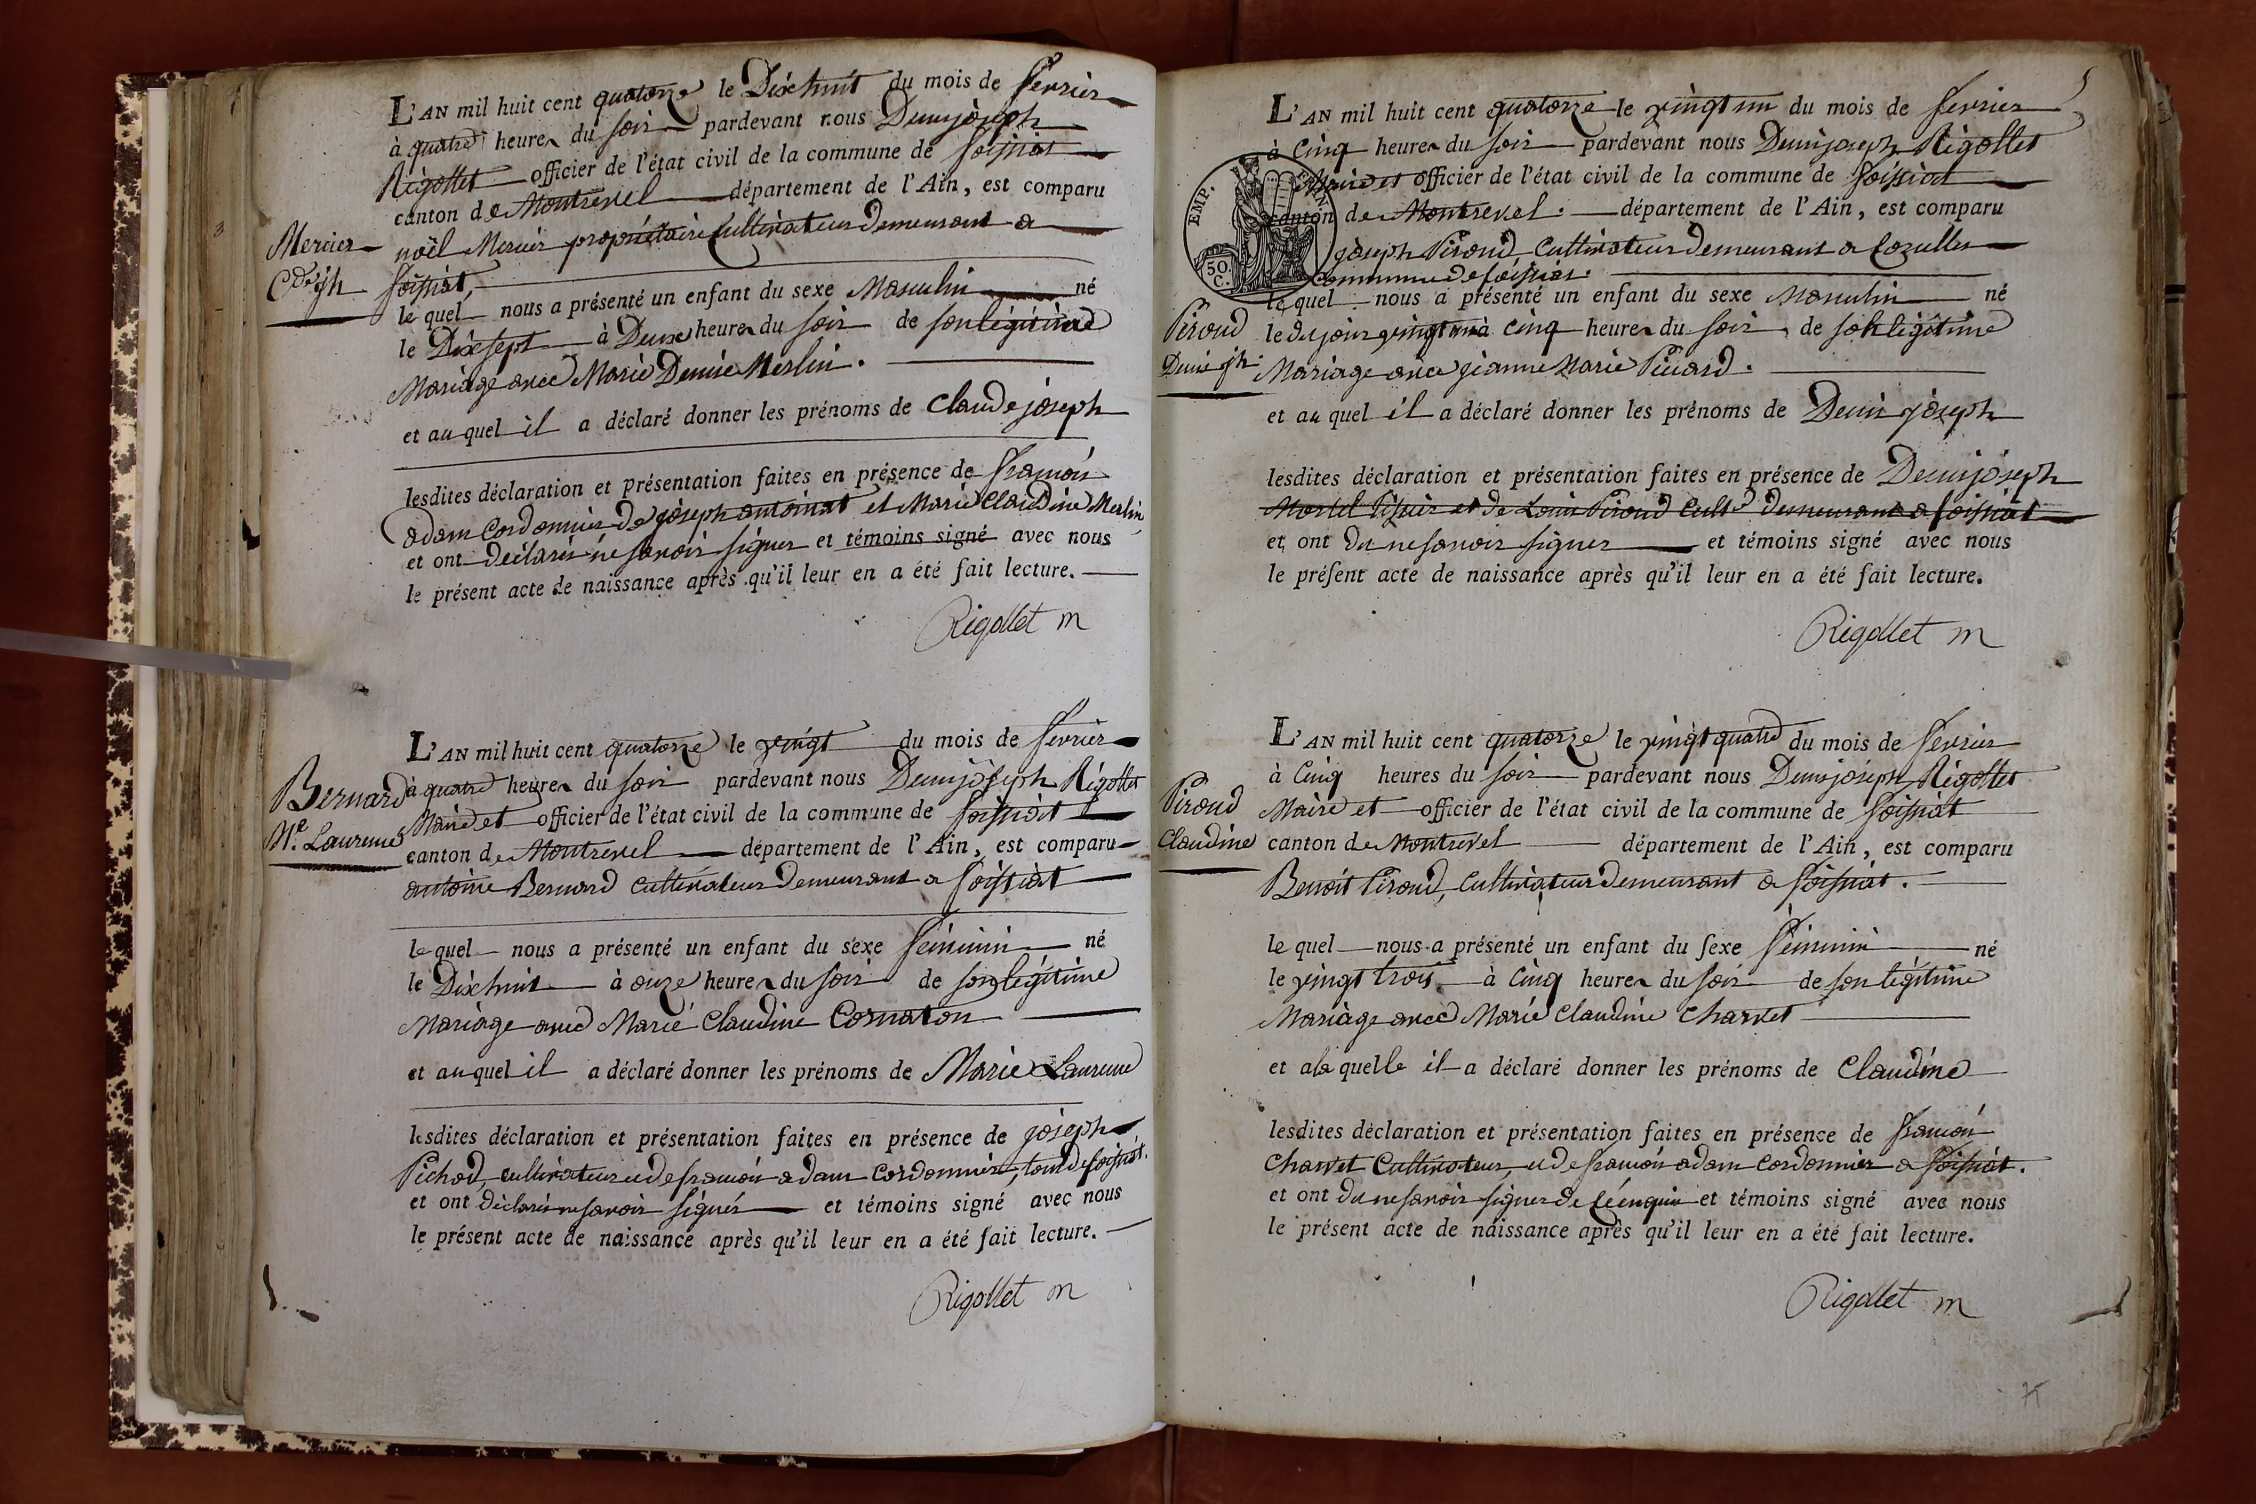 L'AN mil huit cent quatorze le Dixhuit du mois de fevrier
à quatre heures du soir pardevant nous Denis joseph
Rigollet officier de l'état civil de la commune de foissiat
canton de Montrevel département de l'Ain, est comparu
noël Mercier propriétaire Cultivateur demeurant a
foissiat
Mercier
Cde jh
le quel nous a présenté un enfant du sexe Masculin né
le Dixsept à Deux heures du soir de son légitime
Mariage avec Marie Denise Merlin.
et au quel il a déclaré donner les prénoms de Claude joseph
lesdites déclaration et présentation faites en présence de françois
adam Cordonnier de joseph antoinat et Marie Claudine Merlin
et ont déclarés ne savoir signer et témoins signé avec nous
le présent acte de naissance après qu'il leur en a été fait lecture.
Rigollet m
L'AN mil huit cent quatorze le vingt du mois de fevrier
à quatre heures du soir pardevant nous Denis joseph Rigollet
Maire et officier de l'état civil de la commune de foissiat
canton de Montrevel département de l'Ain, est comparu
antoine Bernard Cultivateur demeurant a foissiat
Bernard
Me. Laurence
le quel nous a présenté un enfant du sexe féminin né
le Dixhuit à onze heures du soir de son légitime
Mariage avec Marie Claudine Cornaton
et au quel il a déclaré donner les prénoms de Marie Laurence
lesdites déclaration et présentation faites en présence de joseph
Pichod, cultivateur et de françois adam Cordonnier, tous de foissiat.
et ont déclarés ne savoir signés et témoins signé avec nous
le présent acte de naissance après qu'il leur en a été fait lecture.
Rigollet m
L'AN mil huit cent quatorze le vingt un du mois de fevrier
à Cinq heures du soir pardevant nous Denis joseph Rigollet
Maire et officier de l'état civil de la commune de foissiat
canton de Montrevel département de l'Ain, est comparu
joseph Piroud, Cultivateur demeurant a
Commune de foissiat.
EMP.
50.
C.
Piroud
Denis jh
le quel nous a présenté un enfant du sexe Masculin né
le du jour vingt un à Cinq heures du soir de son légitime
Mariage avec jeanne Marie
et au quel il a déclaré donner les prénoms de Denis joseph
lesdites déclaration et présentation faites en présence de Denis joseph
et de Louis Piroud Cultrs demeurant a foissiat
et ont dit ne savoir signer et témoins signé avec nous
le présent acte de naissance après qu'il leur en a été fait lecture.
Rigollet m
L'AN mil huit cent quatorze le vingt quatre du mois de fevrier
à Cinq heures du soir pardevant nous Denis joseph Rigollet
Maire et officier de l'état civil de la commune de foissiat
canton de Montrevel département de l'Ain, est comparu
Benoit Piroud, Cultivateur demeurant a foissiat.
Piroud
Claudine
le quel nous a présenté un enfant du sexe féminin né
le vingt trois à Cinq heures du soir de son légitime
Mariage avec Marie Claudine Charvet
et a la quelle il a déclaré donner les prénoms de Claudine
lesdites déclaration et présentation faites en présence de françois
Charvet Cultivateur, et de françois adam Cordonnier a foissiat.
et ont dit ne savoir signer de ce enquis et témoins signé avec nous
le présent acte de naissance après qu'il leur en a été fait lecture.
Rigollet m